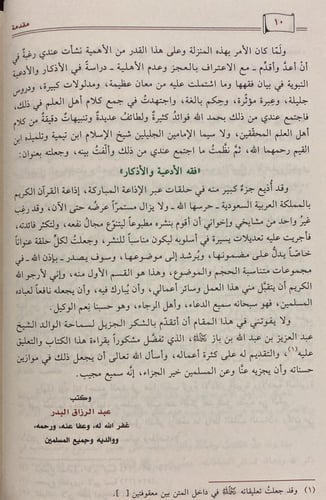 ١٠
مقدمة
ولمّا كان الأمر بهذه المنزلة وعلى هذا القدر من الأهمية نشأت عندي رغبةٌ في
أنْ أعدَّ وأقدِّم ـ مع الاعتراف بالعجز وعدم الأهلية ـ دراسةً في الأذكار والأدعية
النبوية في بيان فقهها وما اشتملت عليه من معان عظيمة، ومدلولات كبيرة، ودروس
جليلة، وعبرة مؤثّرة، وحِكم بالغة، واجتهدتُ في جمع كلام أهل العلم في ذلك،
فاجتمع عندي من ذلك بحمد الله فوائد كثيرةٌ ولطائف عديدةٌ وتنبيهاتٌ دقيقةٌ من كلام
أهل العلم المحقّقين، ولا سيما الإمامين الجليلين شيخ الإسلام ابن تيمية وتلميذه ابن
القيم رحمهما الله، ثم نظّمتُ ما اجتمع عندي من ذلك وألّفتُ بينه، وجعلته بعنوان:
«فقه الأدعية والأذكار»
وقد أُذيع جزءٌ كبير منه في حلقات عبر الإذاعة المباركة، إذاعة القرآن الكريم
بالمملكة العربية السعودية ـ حرسها الله ـ ولا يزال مستمرّاً عرضُه حتى الآن، وقد رغب
غيرُ واحد من مشايخي وإخواني أن أقوم بنشره مطبوعاً ليتنوّع مجالُ نفعه، ولتكثر فائدته،
فأجريت عليه تعديلات يسيرة في أسلوبه ليكون مناسباً للنشر، وجعلتُ لكلِّ حلقة عنواناً
خاصّاً يدلُّ على مضمونها، ويُرشد إلى موضوعها، وسوف يصدر ـ بإذن الله ـ في
مجموعات متناسبة الحجم والموضوع، وهذا هو القسم الأول منه، وإني لأرجو الله
الكريم أن يتقبَّل مني هذا العمل وسائر أعمالي، وأن يُبارك فيه، وأن يجعله نافعاً لعباده
المسلمين، فهو سبحانه سميع الدعاء، وأهل الرجاء، وهو حسبنا نِعم الوكيل.
ولا يفوتني في هذا المقام أن أتقدّم بالشكر الجزيل لسماحة الوالد الشيخ
عبد العزيز بن عبد الله بن باز ﵀، الذي تفضّل مشكوراً بقراءة هذا الكتاب والتعليق
عليه(١)، والتقديم له على كثرة أعماله، وأسأل الله تعالى أن يجعل ذلك في موازين
حسناته وأن يجزيه عنّا وعن المسلمين خير الجزاء، إنَّه سميع مجيب.
وكتب
عبد الرزاق البدر
غفر الله له، وعفا عنه، ورحمه،
ووالديه وجميع المسلمين
(١) وقد جعلتُ تعليقاته ﵀ في داخل المتن بين معقوفتين [ ].